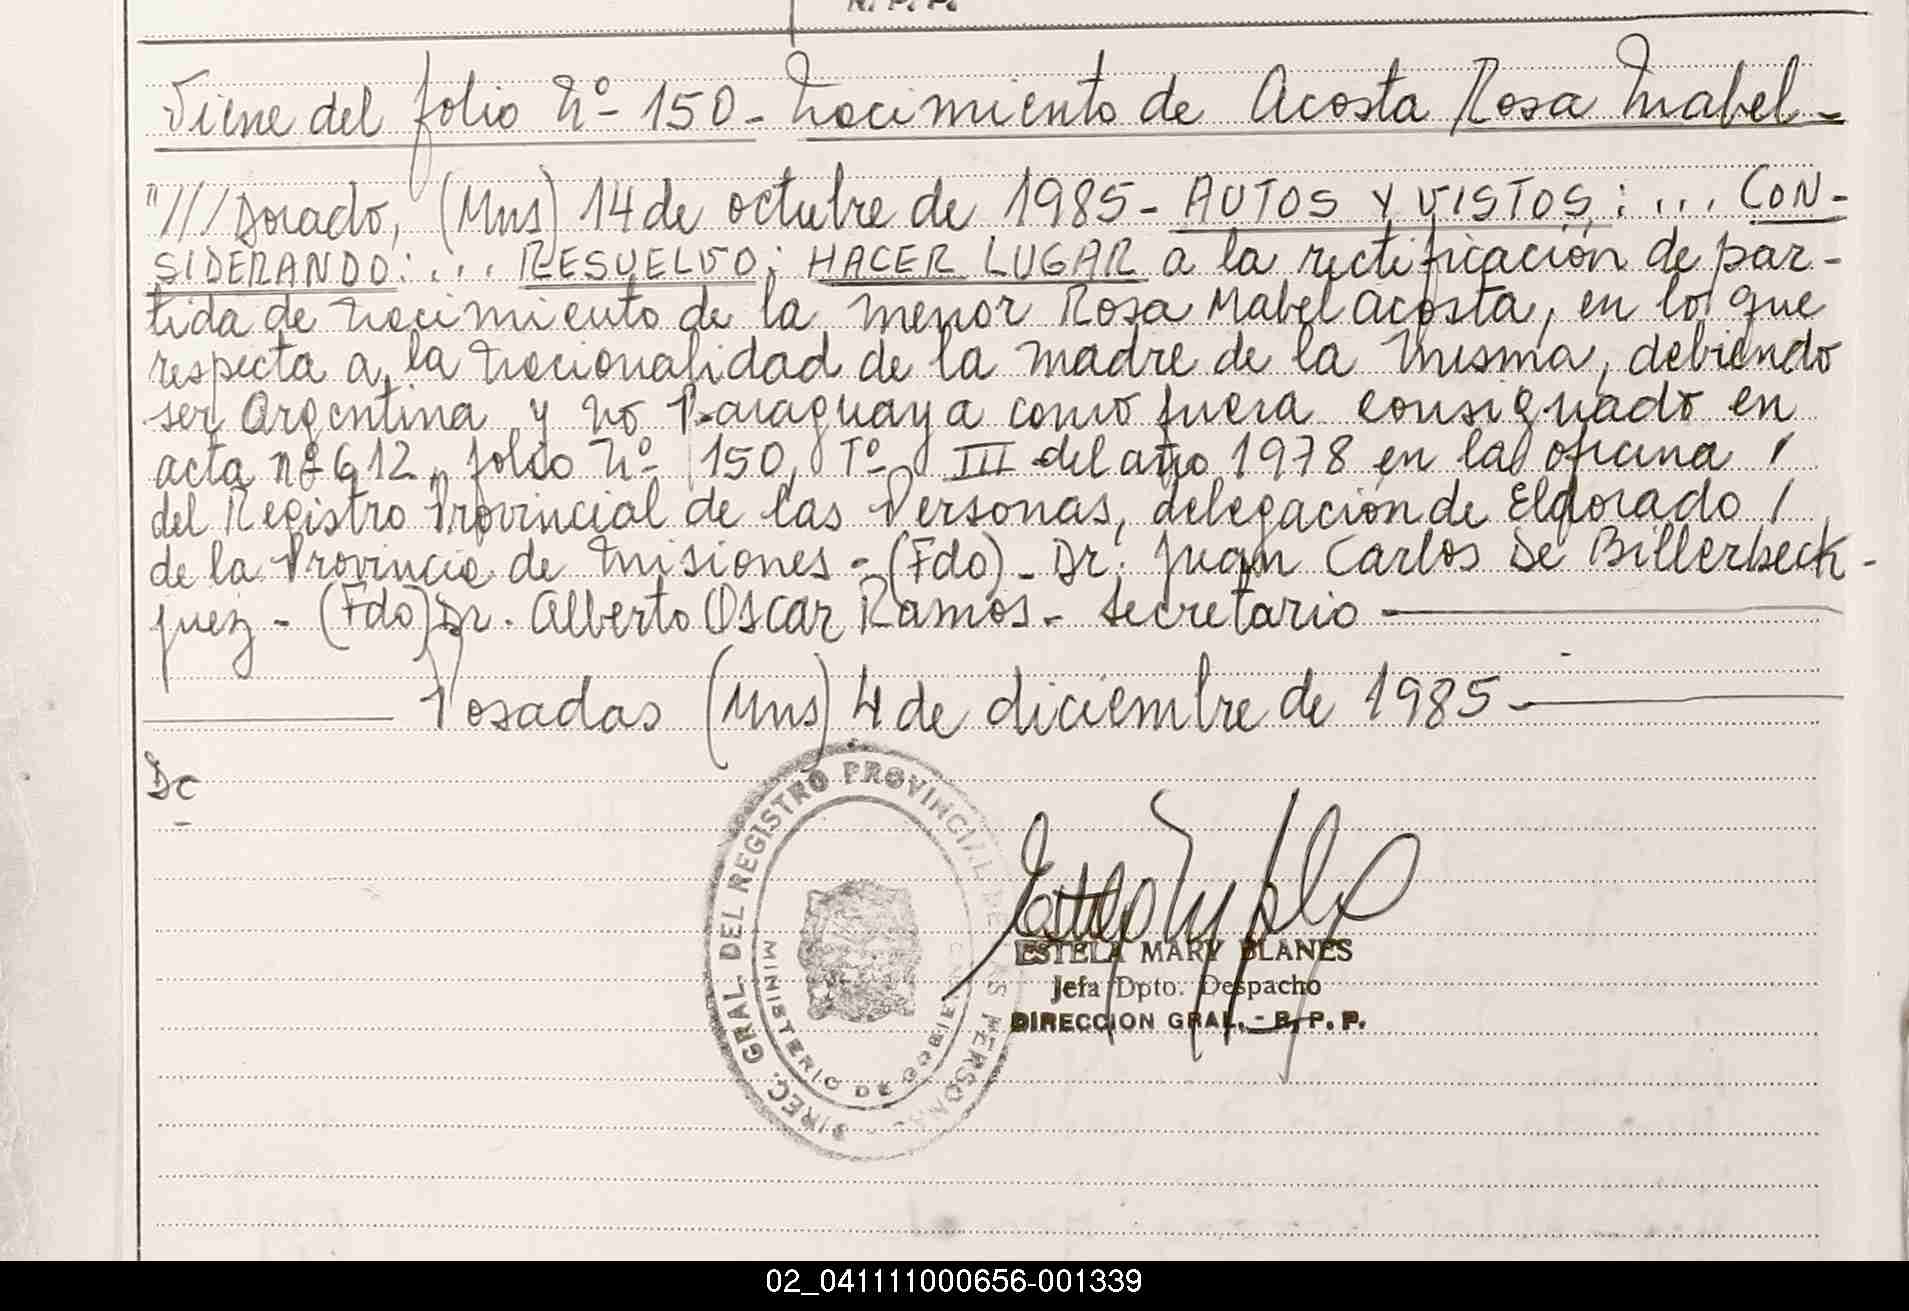 R. P. P.
Viene del folio Nº 150 - Nacimiento de Acosta Rosa Mabel -
"///Dorado, (Mns) 14 de octubre de 1985 - AUTOS Y VISTOS : ... CON-
SIDERANDO: ... RESUELVO: HACER LUGAR a la rectificación de par-
tida de nacimiento de la menor Rosa Mabel Acosta, en lo que
respecta a la nacionalidad de la madre de la misma, debiendo
ser Argentina y no Paraguaya como fuera consignado en
acta nº 612, folio Nº 150, Tº III del año 1978 en la oficina /
del Registro Provincial de las Personas, delegación de Eldorado /
de la Provincia de Misiones - (Fdo) - Dr. Juan Carlos De Billerbeck -
juez - (Fdo) Dr. Alberto Oscar Ramos - secretario
Posadas (Mns) 4 de diciembre de 1985 -
Dc
DIREC. GRAL. DEL REGISTRO PROVINCIAL DE LAS PERSONAS
MINISTERIO DE GOBIERNO
ESTELA MARY BLANES
Jefa Dpto. Despacho
DIRECCION GRAL. - R. P. P.
02_041111000656-001339